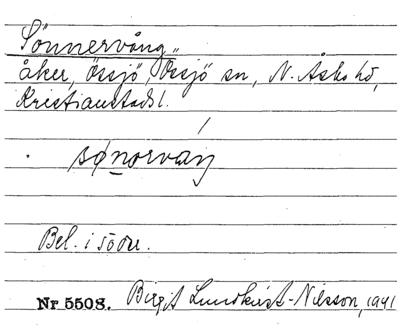 "Sönnervång"
åker, Össjö, Össjö sn, N. Åsbo hd,
Kristianstads l.
Bel. i söder.
Nr 5508. Birgit Lundkvist-Nilsson, 1941